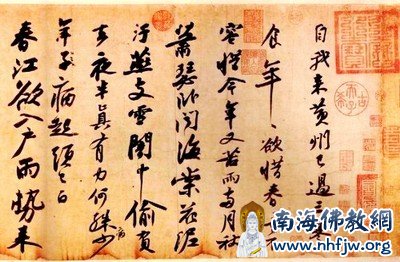 自我来黄州已過三寒
食年〻欲惜春
容惜今年又苦雨兩月秋
蕭瑟卧聞海棠花泥
汙燕支雪闇中偷負
去夜半真有力何殊少
病
年子病起頭已白
春江欲入户雨勢来
南海佛教網
www.nhfjw.org